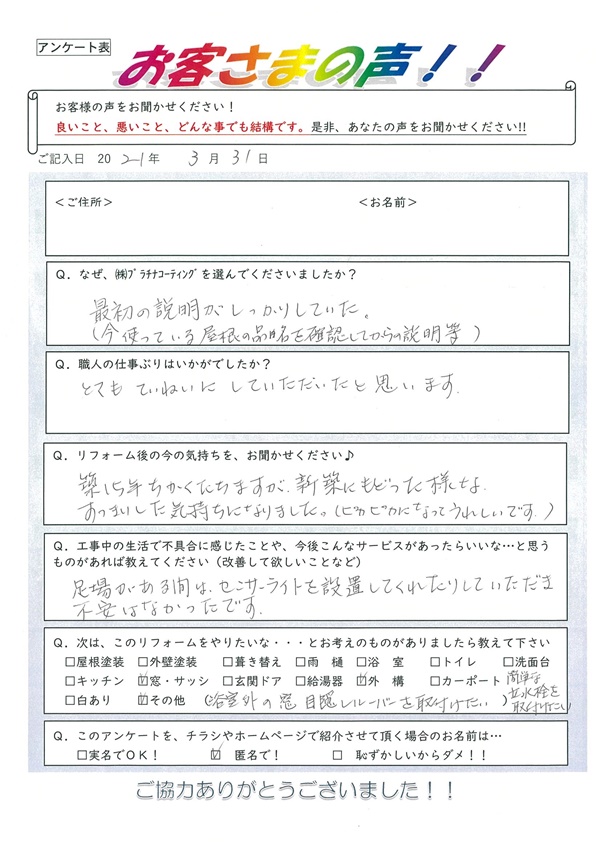 アンケート表
お客さまの声!!
お客様の声をお聞かせください!
良いこと、悪いこと、どんな事でも結構です。是非、あなたの声をお聞かせください!!
ご記入日 2021年 3月 31日
<ご住所> <お名前>
Q．なぜ、㈱ﾌﾟﾗﾁﾅｺｰﾃｨﾝｸﾞを選んでくださいましたか？
最初の説明がしっかりしていた。
(今使っている屋根の品名を確認してからの説明等)
Q．職人の仕事ぶりはいかがでしたか？
とても ていねいに していただいたと思います.
Q．リフォーム後の今の気持ちを、お聞かせください♪
築15年ちかくたちますが、新築にもどった様な、
すっきりした気持ちになりました。(ピカピカになってうれしいです。)
Q．工事中の生活で不具合に感じたことや、今後こんなサービスがあったらいいな…と思う
ものがあれば教えてください（改善して欲しいことなど）
足場がある間は、センサーライトを設置してくれたりしていただき
不安はなかったです.
Q．次は、このリフォームをやりたいな・・・とお考えのものがありましたら教えて下さい
□屋根塗装 □外壁塗装 □葺き替え □雨 樋 □浴 室 □トイレ □洗面台
□キッチン ☑窓・サッシ □玄関ドア □給湯器 ☑外 構 □カーポート 簡単な
□白あり ☑その他 (浴室外の窓 目隠しルーバーを取付けたい) 立水栓を
取付けたい
Q．このアンケートを、チラシやホームページで紹介させて頂く場合のお名前は…
□実名でOK！ ☑ 匿名で！ □ 恥ずかしいからダメ！！
ご協力ありがとうございました！！